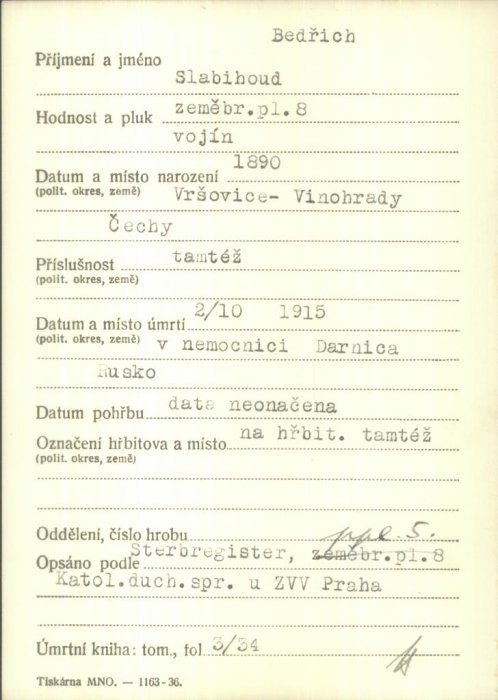 Bedřich
Příjmení a jméno
Slabihoud
Hodnost a pluk zeměbr.pl.8
vojín
Datum a místo narození 1890
(polit. okres, země) Vršovice- Vinohrady
Čechy
Příslušnost tamtéž
(polit. okres, země)
Datum a místo úmrtí 2/10 1915
(polit. okres, země) v nemocnici Darnica
Rusko
Datum pohřbu data neonačena
Označení hřbitova a místo na hřbit. tamtéž
(polit. okres, země)
Oddělení, číslo hrobu ppl. 5.
Opsáno podle Sterbregister, zeměbr.pl.8
Katol.duch.spr. u ZVV Praha
Úmrtní kniha: tom., fol 3/34
Tiskárna MNO. — 1163-36.